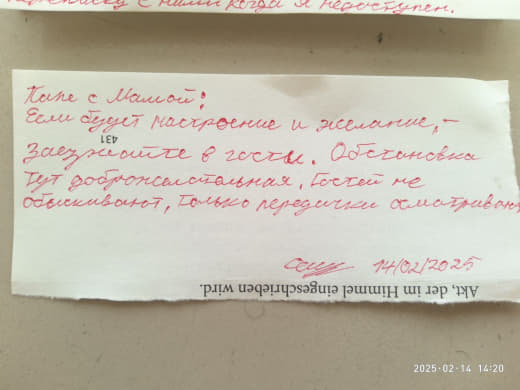 переписку с нами когда я недоступен.
Папе с Мамой:
Если будет настроение и желание, –
431
Заезжайте в гости. Обстановка
тут доброжелательная. Гостей не
обыскивают, только передачки осматривают
14/02/2025
Akt, der im Himmel eingeschrieben wird.
2025-02-14 14:20